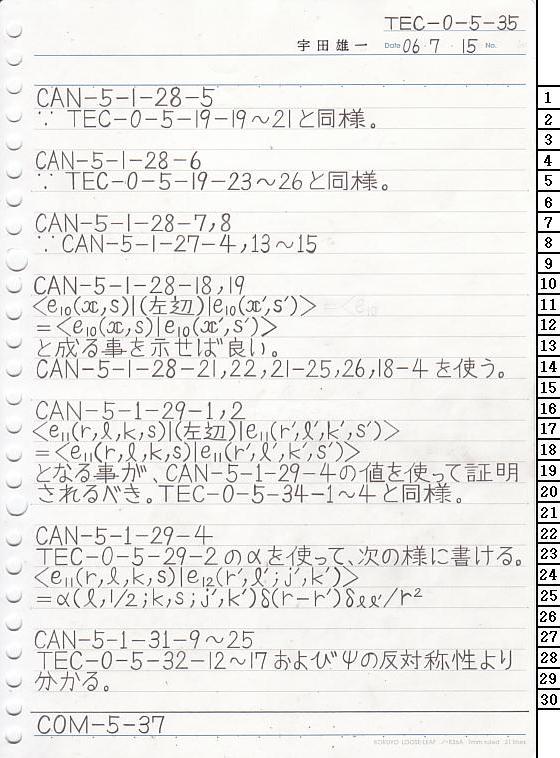 TEC-0-5-35
宇田雄一 Date 06・7・15 No.
CAN-5-1-28-5
∵ TEC-0-5-19-19～21と同様。
CAN-5-1-28-6
∵ TEC-0-5-19-23～26と同様。
CAN-5-1-28-7,8
∵ CAN-5-1-27-4,13～15
CAN-5-1-28-18,19
<e₁₀(x,s)|(左辺)|e₁₀(x′,s′)>
=<e₁₀(x,s)|e₁₀(x′,s′)>
と成る事を示せば良い。
CAN-5-1-28-21,22,21-25,26,18-4を使う。
CAN-5-1-29-1,2
<e₁₁(r,ℓ,k,s)|(左辺)|e₁₁(r′,ℓ′,k′,s′)>
=<e₁₁(r,ℓ,k,s)|e₁₁(r′,ℓ′,k′,s′)>
となる事が、CAN-5-1-29-4の値を使って証明
されるべき。TEC-0-5-34-1～4と同様。
CAN-5-1-29-4
TEC-0-5-29-2のαを使って、次の様に書ける。
<e₁₁(r,ℓ,k,s)|e₁₂(r′,ℓ′;j′,k′)>
=α(ℓ,1/2;k,s;j′,k′)δ(r-r′)δℓℓ′/r²
CAN-5-1-31-9～25
TEC-0-5-32-12～17およびψの反対称性より
分かる。
COM-5-37
KOKUYO LOOSE-LEAF ノ-836A 7mm ruled 31 lines
1
2
3
4
5
6
7
8
9
10
11
12
13
14
15
16
17
18
19
20
21
22
23
24
25
26
27
28
29
30